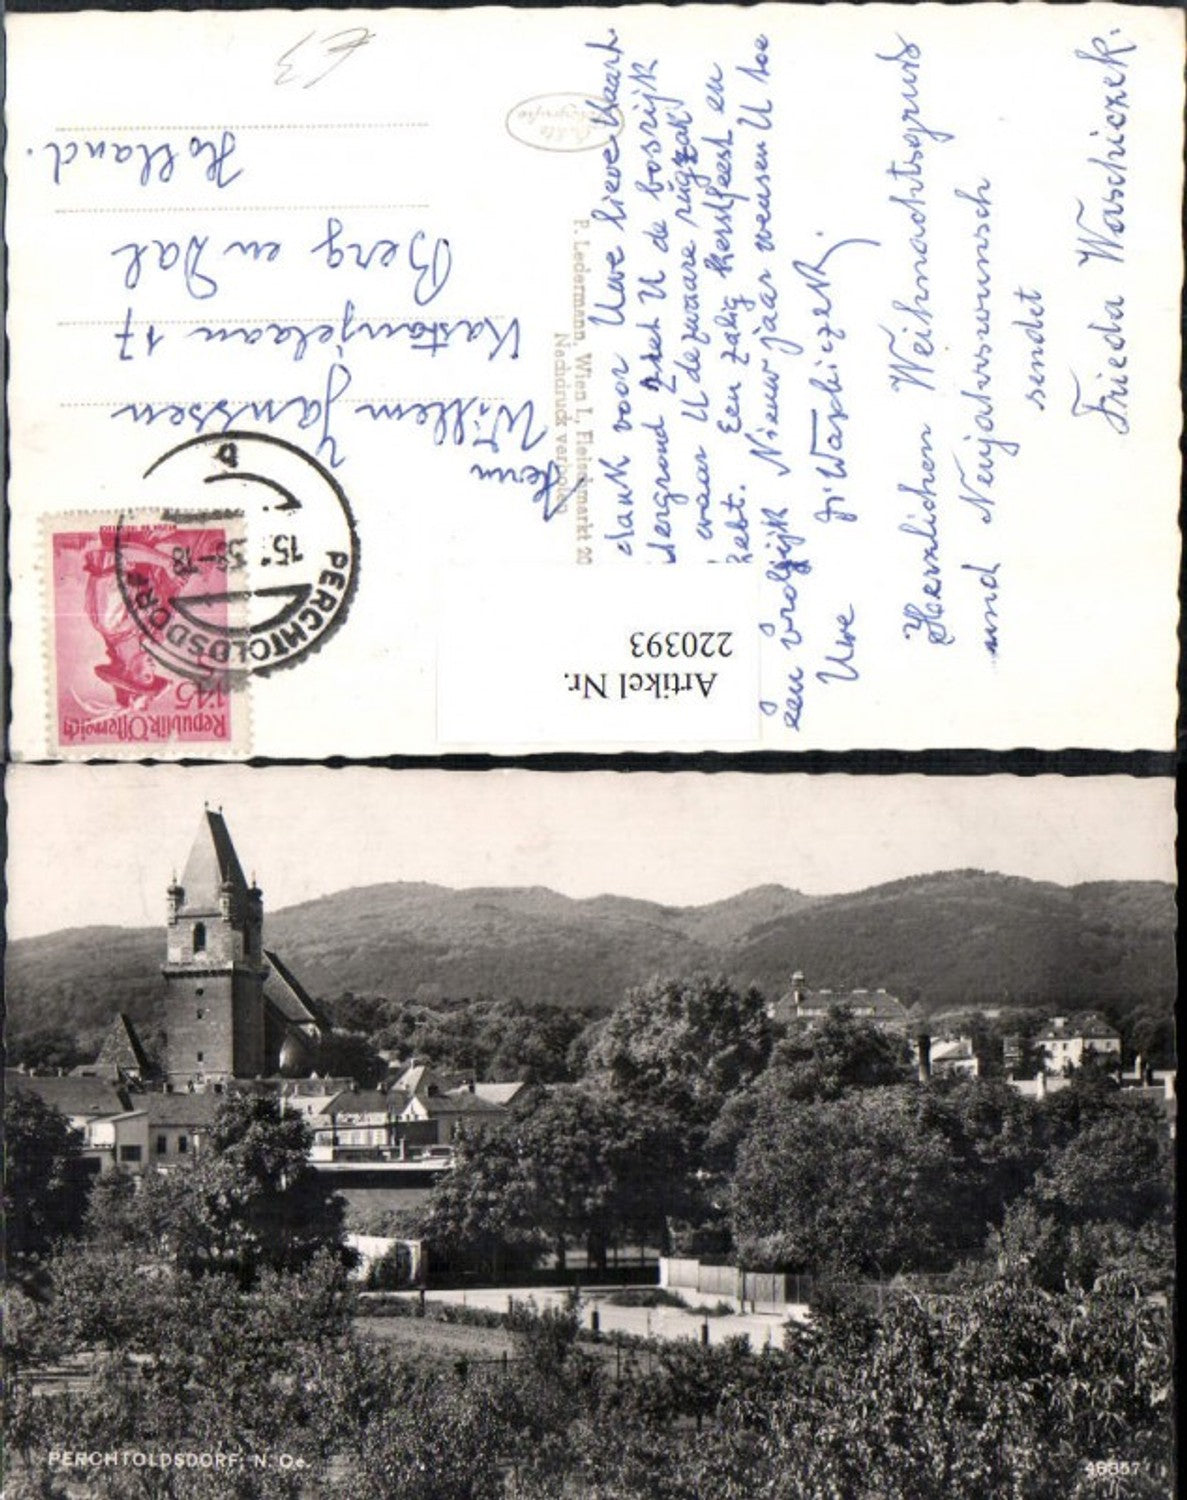 €3
Echte
dank voor Uwe lieve kaart.
dergrond U de bosrijk
waar U de zware rugzak
hebt. Een zalig Kerstfeest en
een vrolijk Nieuwjaar wensen U toe
Uwe Waschiczek.
Herzlichen Weihnachtsgruß
und Neujahrswunsch
sendet
Frieda Waschiczek.
P. Ledermann, Wien I., Fleischmarkt 20
Nachdruck verboten
Herrn
Willem Janssen
Kastanjelaan 17
Berg en Dal
Holland.
Republik Österreich
1·45
PERCHTOLDSDORF
15. 58-18
b
Artikel Nr.
220393
PERCHTOLDSDORF, N. Oe.
46357